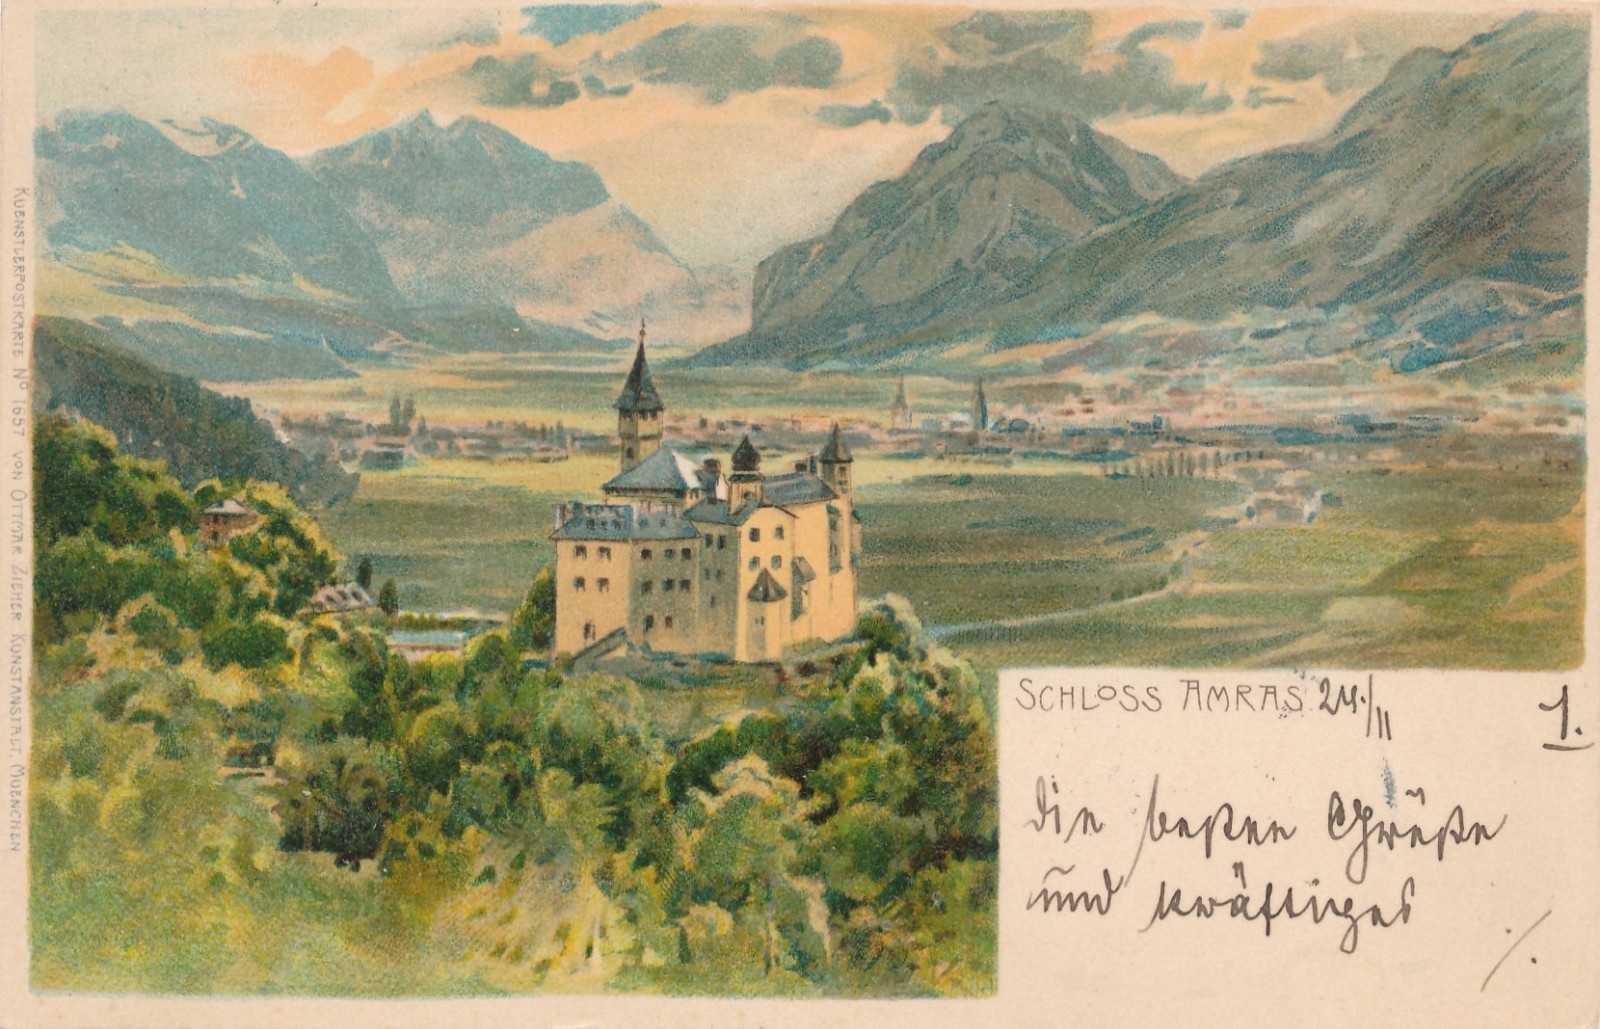 KUENSTLERPOSTKARTE Nº 1657 VON OTTMAR ZIEHER KUNSTANSTALT, MUENCHEN
SCHLOSS AMRAS. 24./11
1.
Die besten Grüße
und kräftiges
./.